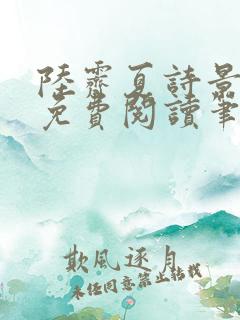 陸霽夏詩景
免費閱讀筆
欺風逐月
未經同意禁止轉載